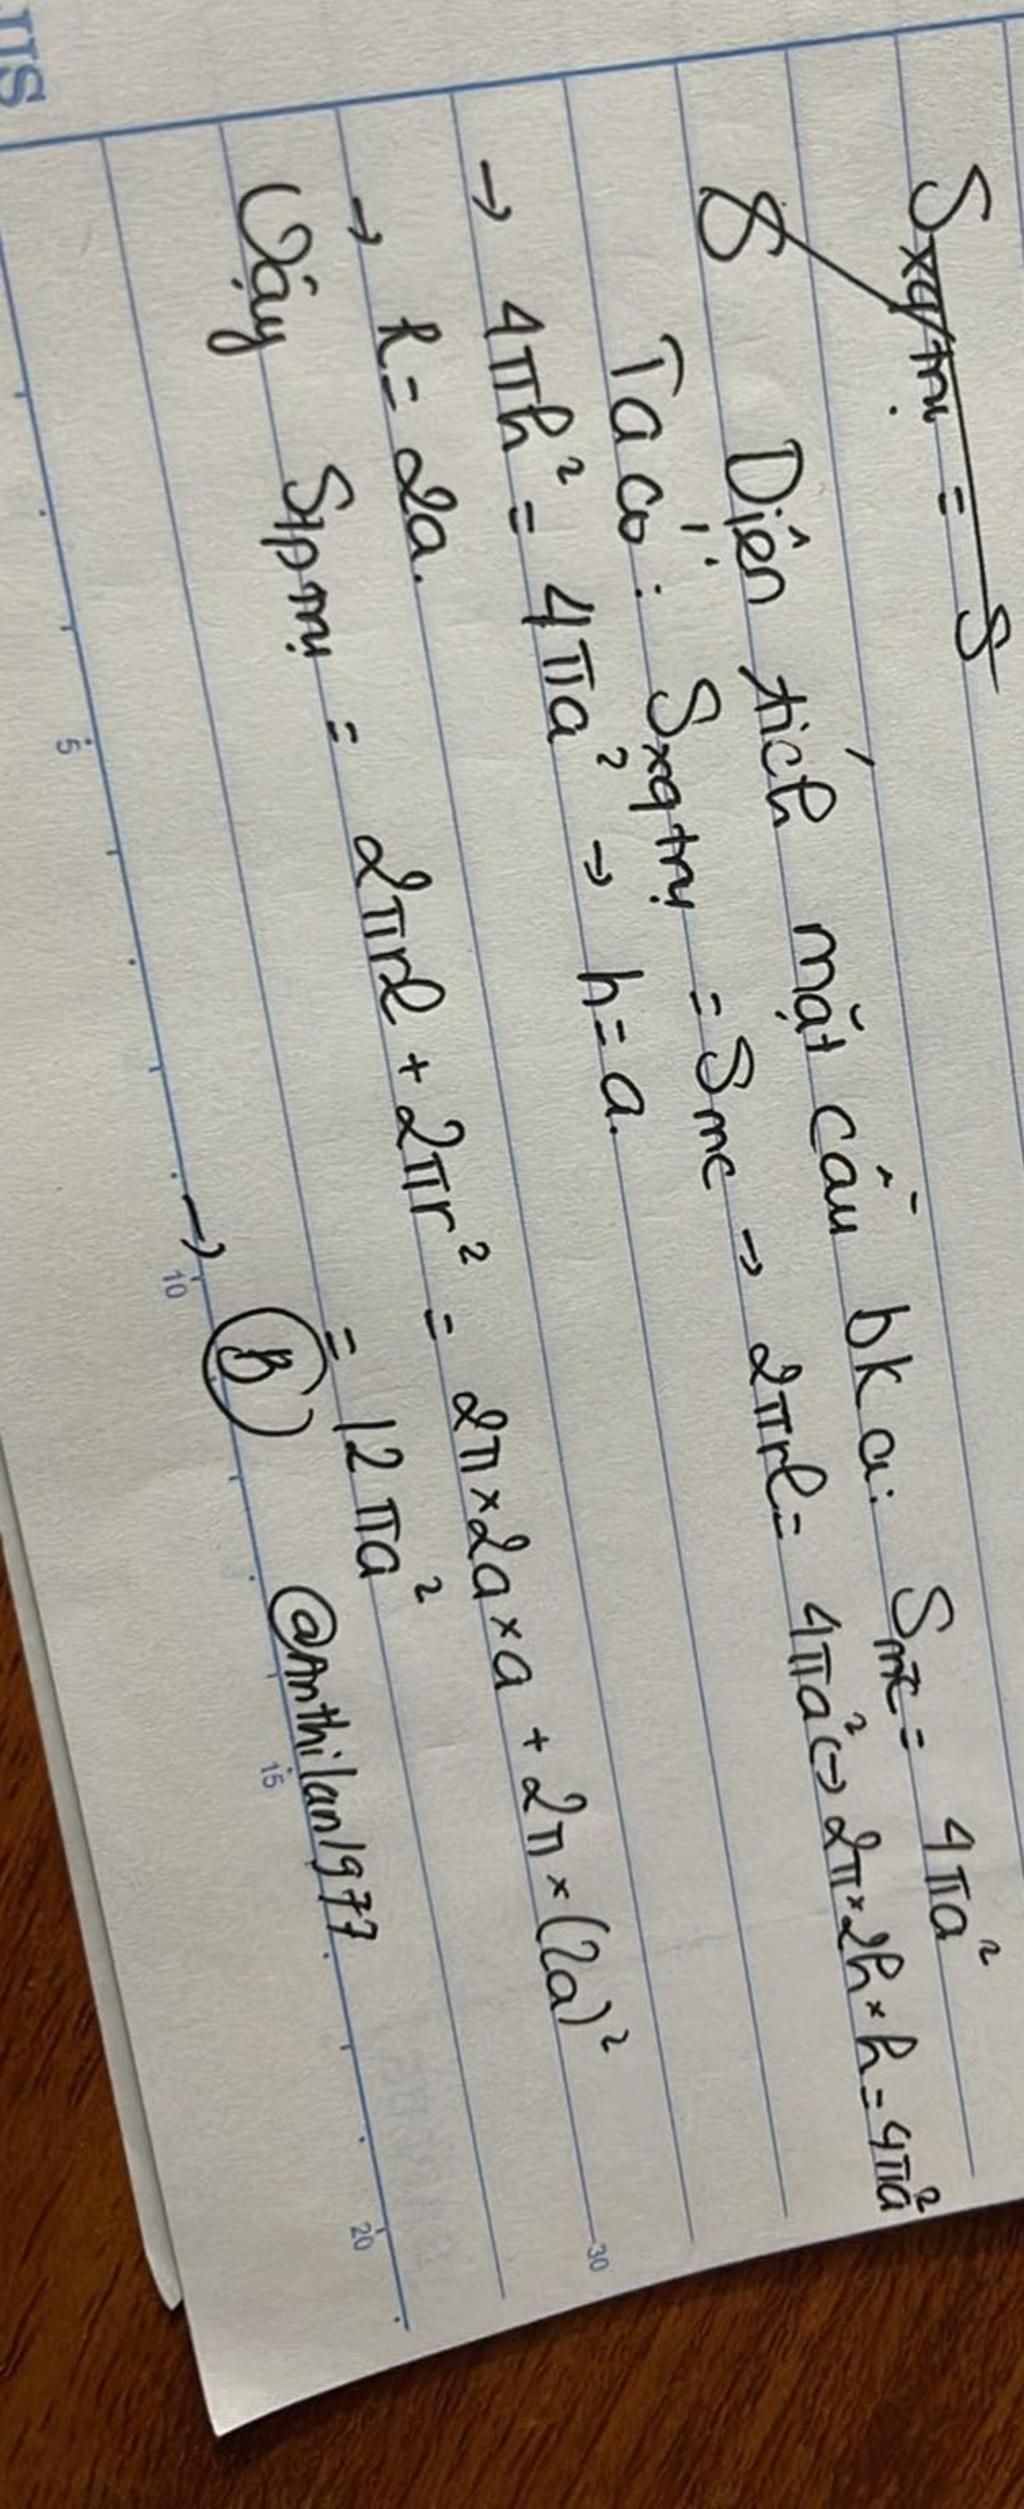 Sxqtrụ = S
8 Diện tích mặt cầu bk a: Smc = 4πa²
Ta có: Sxqtrụ = Smc → 2πrl = 4πa² ↔ 2π×2h×h = 4πa²
→ 4πh² = 4πa² → h = a.
→ R = 2a.
Vậy Stptrụ = 2πrl + 2πr² = 2π×2a×a + 2π×(2a)²
= 12πa²
→ B @Anthilan1977
5
10
15
20
30